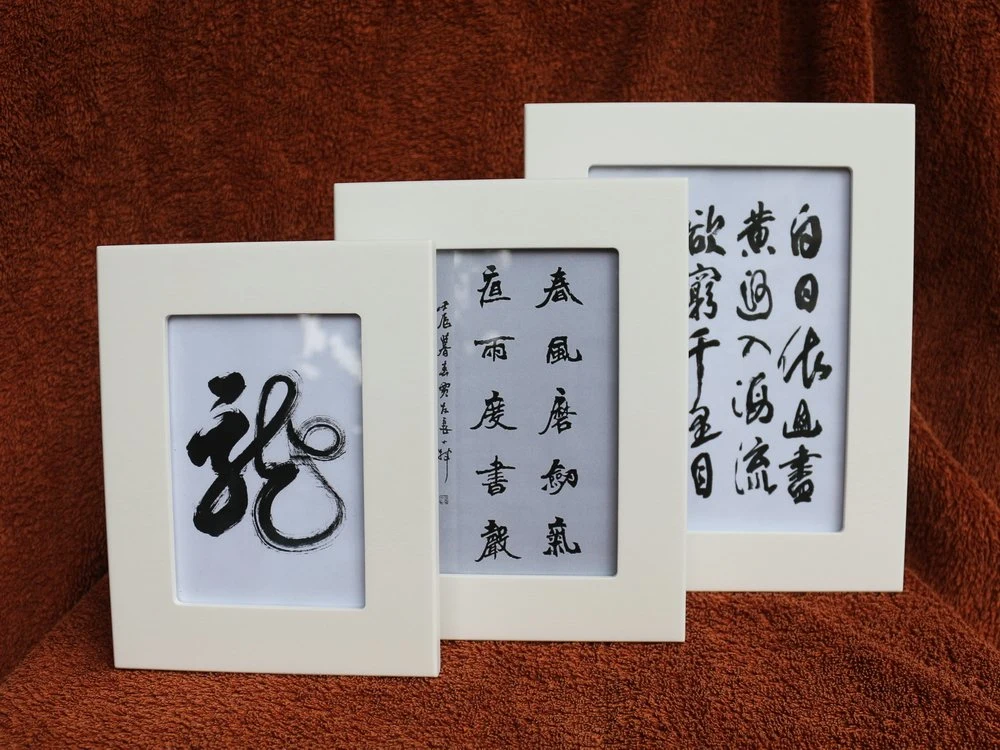 龍
春風磨劍氣
亱雨度書聲
壬辰暮春
白日依山盡
黃河入海流
欲窮千里目